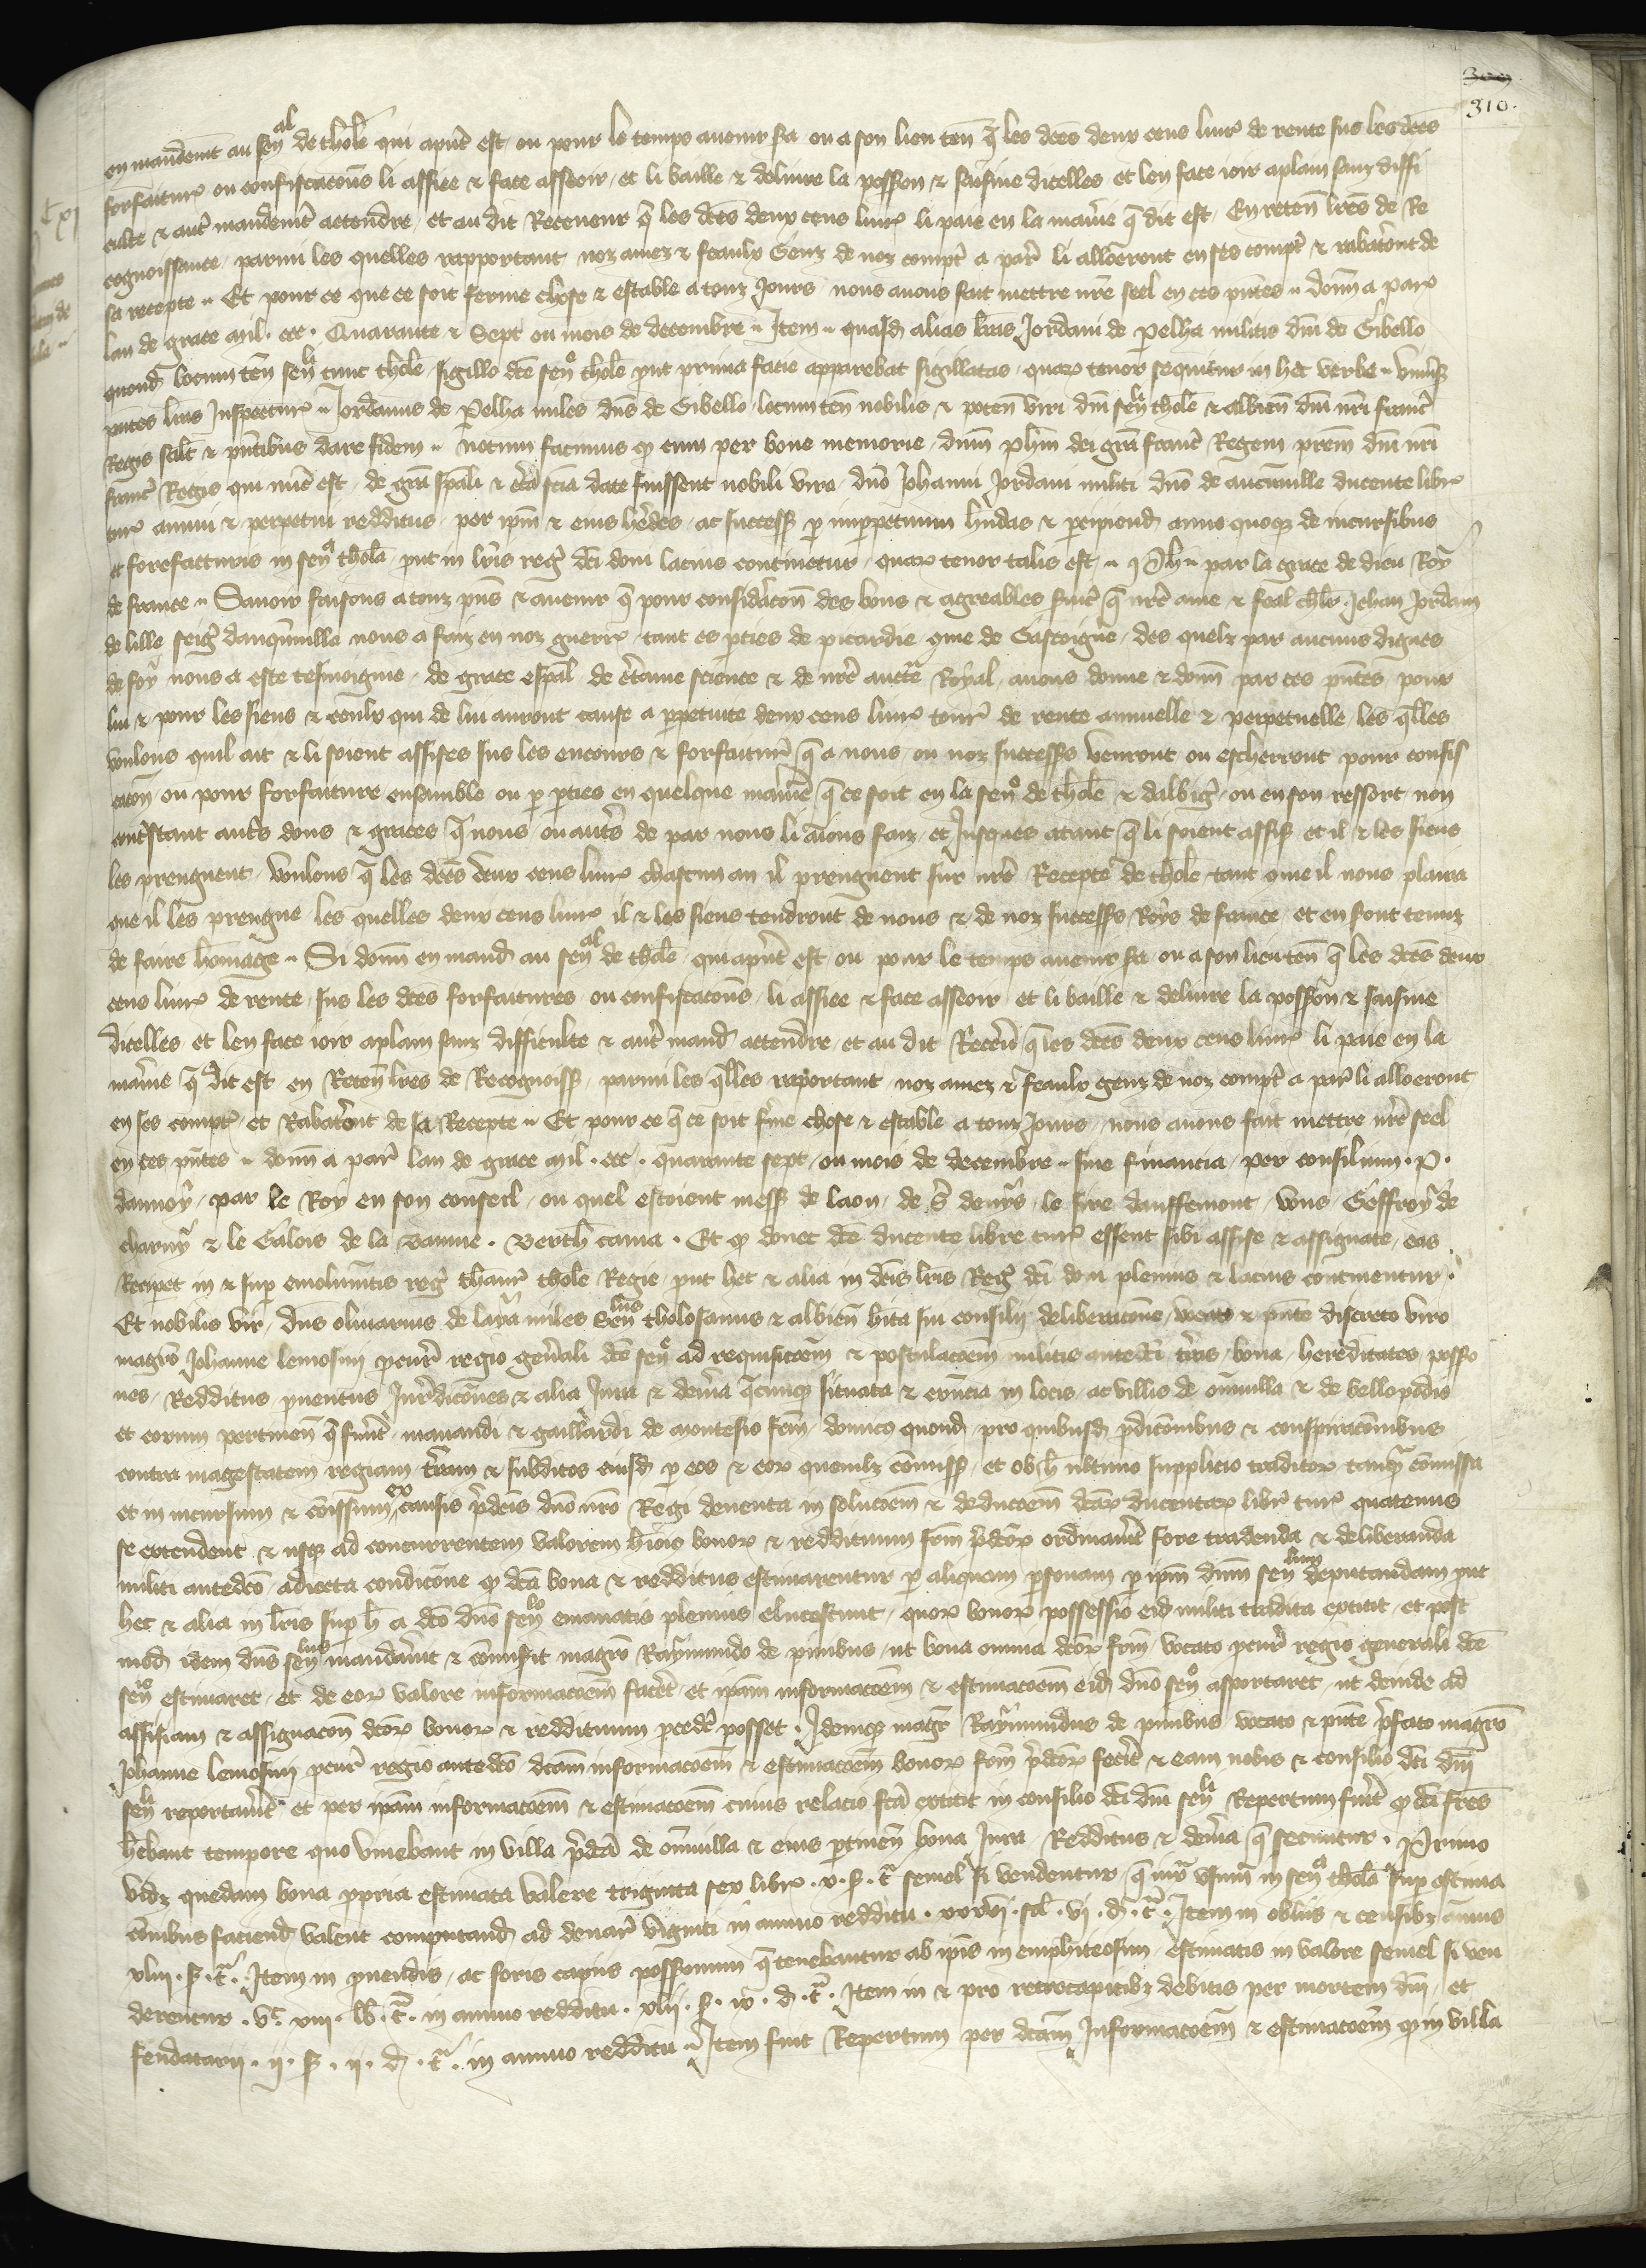 309
310.
en mandement au sen^al de thol̄e qui apn̄t est / ou pour le temps auenir sa / ou a son lieu ten̄ q̄ les dc̄es deux cens liur̄ de rente sus les dc̄es
forfaitur̄ ou confiscac̄ons li assiee & face asseoir / et li baille & deliure la poss̄ion & saisine dicelles et len face ioir aplain sanz diffi
culte & aut̄ mandemēt actendre / et au dit Receueur q̄ les dc̄es deux cens liur̄ li paie en la manīe q̄ dit est / En reten̄ lr̄es de Re
cognoissance / parmi les quelles rapportant noz amez & feaulx Genz de noz compt̄ a par̄ li alloeront en ses compt̄ & rabatr̄ont de
sa recepte .. Et pour ce que ce soit ferme chose & estable a touz Jours nous auons fait mettre nr̄e seel en ces pn̄tes .. donn̄ a par̄
lan de grace mil . ccc . Quarante & Sept ou mois de decembre .. Item .. quasd̄ alias lr̄as Jordani de Pelha militis dn̄i de Gibello
quond̄ locum ten̄ sen̄^li tunc thol̄e / sigillo dc̄e sen̄^e thol̄e put prima facie apparebat sigillatas / quar̄ tenor sequitur in hec verba .. Vniūs̄
pn̄tes lr̄as Inspectur̄ .. Jordanus de Pelha miles dn̄s de Gibello / locum ten̄ nobilis & poten̄ viri dn̄i sen̄^li thol̄e & albien̄ dn̄i nr̄i franc̄
Regis salt̄ & pn̄tibus dare fidem .. Notum facimus q̄ cum per bone memorie / dn̄m ph̄m dei gr̄a franc̄ Regem / prēm dn̄i nr̄i
franc̄ Regis qui nūc est / de gr̄a sp̄ali & cer̄ta sciā date fuissent nobili viro / dn̄o Johanni Jordani militi dn̄o de aucanuille ducente libr̄
tur̄ annui & perpetui redditus / per ip̄m & eius her̄des / ac success̄ p̄ imperpetuum hn̄das & percipiend̄ anno quoq̄ de incursibus
et forefacturis in sen̄^a thol̄a / put in lr̄is reḡ dc̄i doni lacius continetur / quar̄ tenor talis est .. Ph̄e .. par la grace de dieu Roy
de france .. Sauoir faisons a touz pn̄s & auenir q̄ pour considerac̄on des bons & agreables seruic̄ q̄ nr̄e ame & feal chlr̄ Jehan Jordain
de lille seiḡ danq̄nuille nous a faiz en noz guerr̄ / tant es pties de picardie q̄me de Gascoigne / des quelz par aucuns dignes
de foy nous a este tesmoignie / de grace esp̄al de cer̄taine science & de nr̄e auct̄e Royal / auons donne & donn̄ par ces pn̄tes / pour
lui & pour les siens & ceulx qui de lui auront cause a perpetuite deux cens liur̄ tourn̄ de rente annuelle & perpetuelle / les q̄lles
voulons quil ait & li soient assises sus les encours & forfaitur̄ q̄ a nous / ou noz success̄ venront ou escherront pour confis
cac̄on / ou pour forfaiture ensamble ou p̄ pties en quelque manīe q̄ ce soit en la sen̄^e de thol̄e & dalbiḡ / ou en son ressort non
contr̄stant aut̄s dons & graces q̄ nous ou aut̄s de par nous li aions faiz / et Jusques atant q̄ li soient assis̄ et il & les siens
les prenguent / voulons q̄ les dc̄es deux cens liur̄ chascun an il prenguent sur nr̄e Recepte de thol̄e / tant q̄me il nous plaira
que il les prengne / les quelles deux cens liur̄ il & les siens tendront de nous & de noz success̄s Roys de france / et en sont tenuz
de faire hom̄age .. Si donn̄ en mand̄ au sen̄^al de thol̄e / qui apn̄t est / ou pour le temps auenir sa / ou a son lieu ten̄ q̄ les dc̄es deux
cens liur̄ de rente / sus les dc̄es forfaitures ou confiscac̄ons / li assiee & face asseoir / et li baille & deliure la poss̄ion & saisine
dicelles / et len face ioir aplain sanz difficulte & aut̄ mand̄ attendre / et au dit Receū q̄ les dc̄es deux cens liur̄ li paie en la
manīe q̄ dit est en Reten̄ lr̄es de Recognoiss̄ / parmi les q̄lles raportant noz amez & feaulx genz de noz compt̄ a par̄ li alloeront
en ses compt̄ / et Rabatr̄ont de sa Recepte .. Et pour ce q̄ ce soit f̄me chose & estable a touz Jours / nous auons fait mettre nr̄e seel
en ces pn̄tes .. donn̄ a par̄ lan de grace mil . ccc . quarante sept / ou mois de decembre .. sine financia / per consilium . P .
dannoy / par le Roy en son conseil / ou quel estoient mess̄ de laon / de S̄ denys / le sire doffemont / vous Geffroy de
charny & le Galois de la Baume . Berth̄ cama . Et q̄ donec dc̄e ducente libre tur̄ essent sibi assise & assignate / eas
Reciperet in & sup emolumn̄tis reḡ thaur̄ thol̄e Regie / put hec & alia in dc̄is lr̄is Reḡ dc̄i doni plenius & lacius continentur .
Et nobilis vir / dn̄s oliuarius de laya miles Sen̄^lus tholosanus & albien̄ hīta sui consilij deliberac̄one / vocato & pn̄te discreto viro
magr̄o Johanne lemosini pcur̄ regio gen̄ali dc̄e sen̄^e ad requisic̄oem & postulac̄oem militis antedc̄i t̄ris / bona / hereditates posses̄o
nes / Redditus / puentus / Jurīdic̄ones & alia Jura & deūia q̄cunq̄ situata & exn̄cia in locis / ac villis de om̄uilla & de bellopodio
et eorum pertinen̄ q̄ fuer̄t / manandi & gaillardi de montesio frm̄ / domicō quond̄ / pro quibusd̄ pdic̄onibus & conspirac̄onibus
contra magestatem regiam / t̄ram & subditos eiusd̄ p̄ eos & eor̄ quemlz̄ com̄iss̄ / et ob h̄ ultimo supplicio traditor̄ tanq̄ com̄issa
et in incursum & com̄issum ex causis p̄dc̄is dn̄o nr̄o Regi deuenta in soluc̄oem & deduc̄oem dc̄ar̄ ducentar̄ libr̄ tur̄ quatenus
se extendent & usq̄ ad concurrentem valorem hm̄ōi bonor̄ & reddituum frm̄ p̄dc̄or̄ ordinauit̄ fore tradenda & deliberanda
militi antedc̄o / adiecta condic̄one q̄ dc̄a bona & redditus estimarentur p̄ aliquam p̄sonam p̄ ip̄m dn̄m sen̄^lum deputandam put
hec & alia in lr̄is sup h̄ a dc̄o dn̄o sen̄^lo emanatis plenius elucescunt / quor̄ bonor̄ possessio eid̄ militi tradita extitit / et post
mod̄ idem dn̄s sen̄^lus mandauit & com̄isit magr̄o Raymundo de pinibus / ut bona omnia dc̄or̄ frm̄ / vocato pcur̄ regio generali dc̄e
sen̄^e estimaret / et de eor̄ valore informac̄oem facet̄ / et ip̄am informac̄oem & estimac̄oem eid̄ dn̄o sen̄^o asportaret / ut deinde ad
assisiam & assignac̄on̄ dc̄or̄ bonor̄ & reddituum pcedi posset . Idemq̄ magr̄ Raymundus de pinibus vocato & pn̄te p̄fato magr̄o
Johanne lemosini pcur̄ regio antedc̄o dc̄am informac̄oem & estimac̄oem bonor̄ frm̄ p̄dc̄or̄ fecit̄ & eam nobis & consilio dc̄i dn̄i
sen̄^li reportauit̄ et per ip̄am informac̄oem & estimac̄oem cuius relacio fc̄a extitit in consilio dc̄i dn̄i sen̄^li Repertum fuit̄ q̄ dc̄i fr̄es
h̄ebant tempore quo viuebant in villa p̄dc̄a de om̄uilla & eius ptinen̄ bona Jura Redditus & deūia q̄ secuntur . Primo
vidz quedam bona ppria estimata valere triginta sex libr̄ . v . s̄ . t̄ semel si vendentur / q̄ iux̄ vsum in sen̄^a thol̄a sup estima
c̄onibus faciend̄ valent computand̄ ad denar̄ viginti in annuo redditu . xxxvi . sol̄ . vi . d̄ . t̄ . Item in obliis & censibz̄ annuis
xliii . s̄ . t̄ . Item in puendis / ac foris capiis possionum q̄ tenebantur ab ip̄is in emphiteosim / estimatis in valore semel si ven
derentur . vᶜ . xiii . lb̄ . t̄ . in annuo redditu . xlii . s̄ . ix . d̄ . t̄ . Item in & pro retrocapitibz̄ debitis per mortem dn̄i / et
feudatarii . ii . s̄ . ii . d̄ . t̄ . in annuo redditu .. Item fuit Repertum per dc̄am Informac̄oem & estimac̄oem q̄ in villa